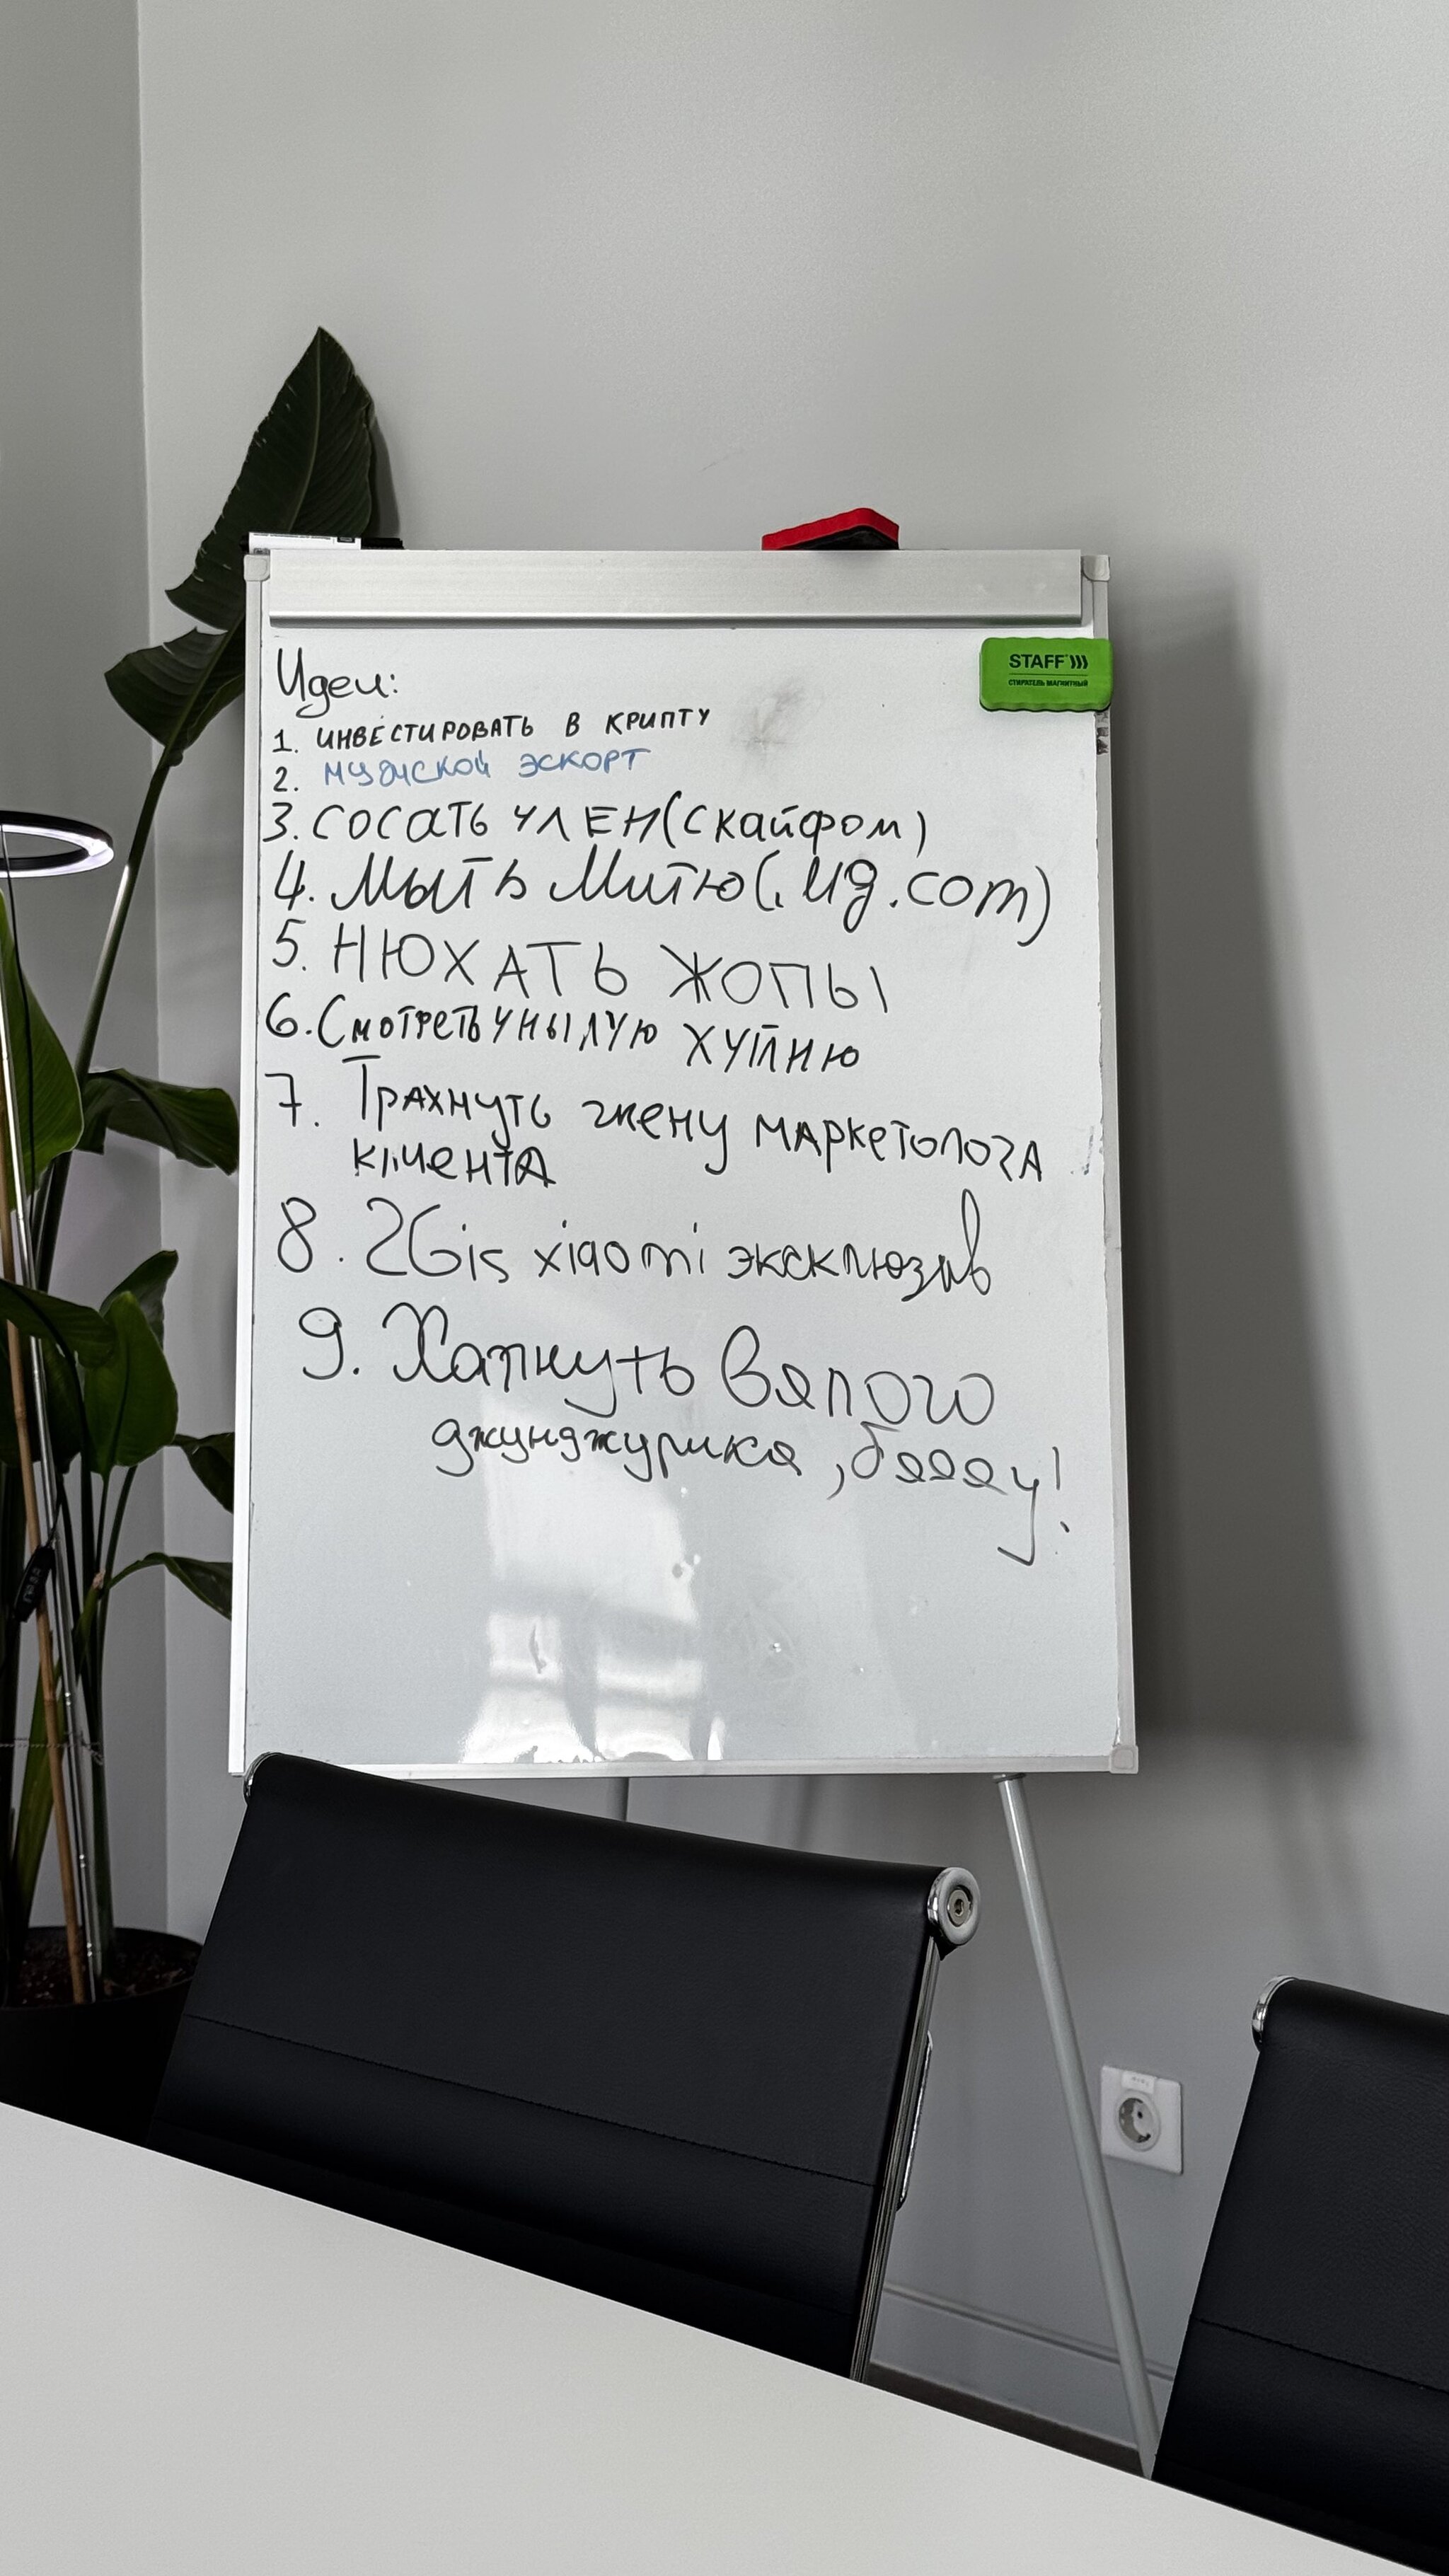 STAFF
СТИРАТЕЛЬ МАГНИТНЫЙ
Идеи:
1. ИНВЕСТИРОВАТЬ В КРИПТУ
2. МУЖСКОЙ ЭСКОРТ
3. СОСАТЬ ЧЛЕН (СКАЙФОМ)
4. Мыть Митю (.ug.com)
5. НЮХАТЬ ЖОПЫ
6. Смотреть унылую
7. Трахнуть жену маркетолога
клиента
8. 2Gis xiaomi эксклюзив
9. Хапнуть вялого
джунджурика, бяяяу!